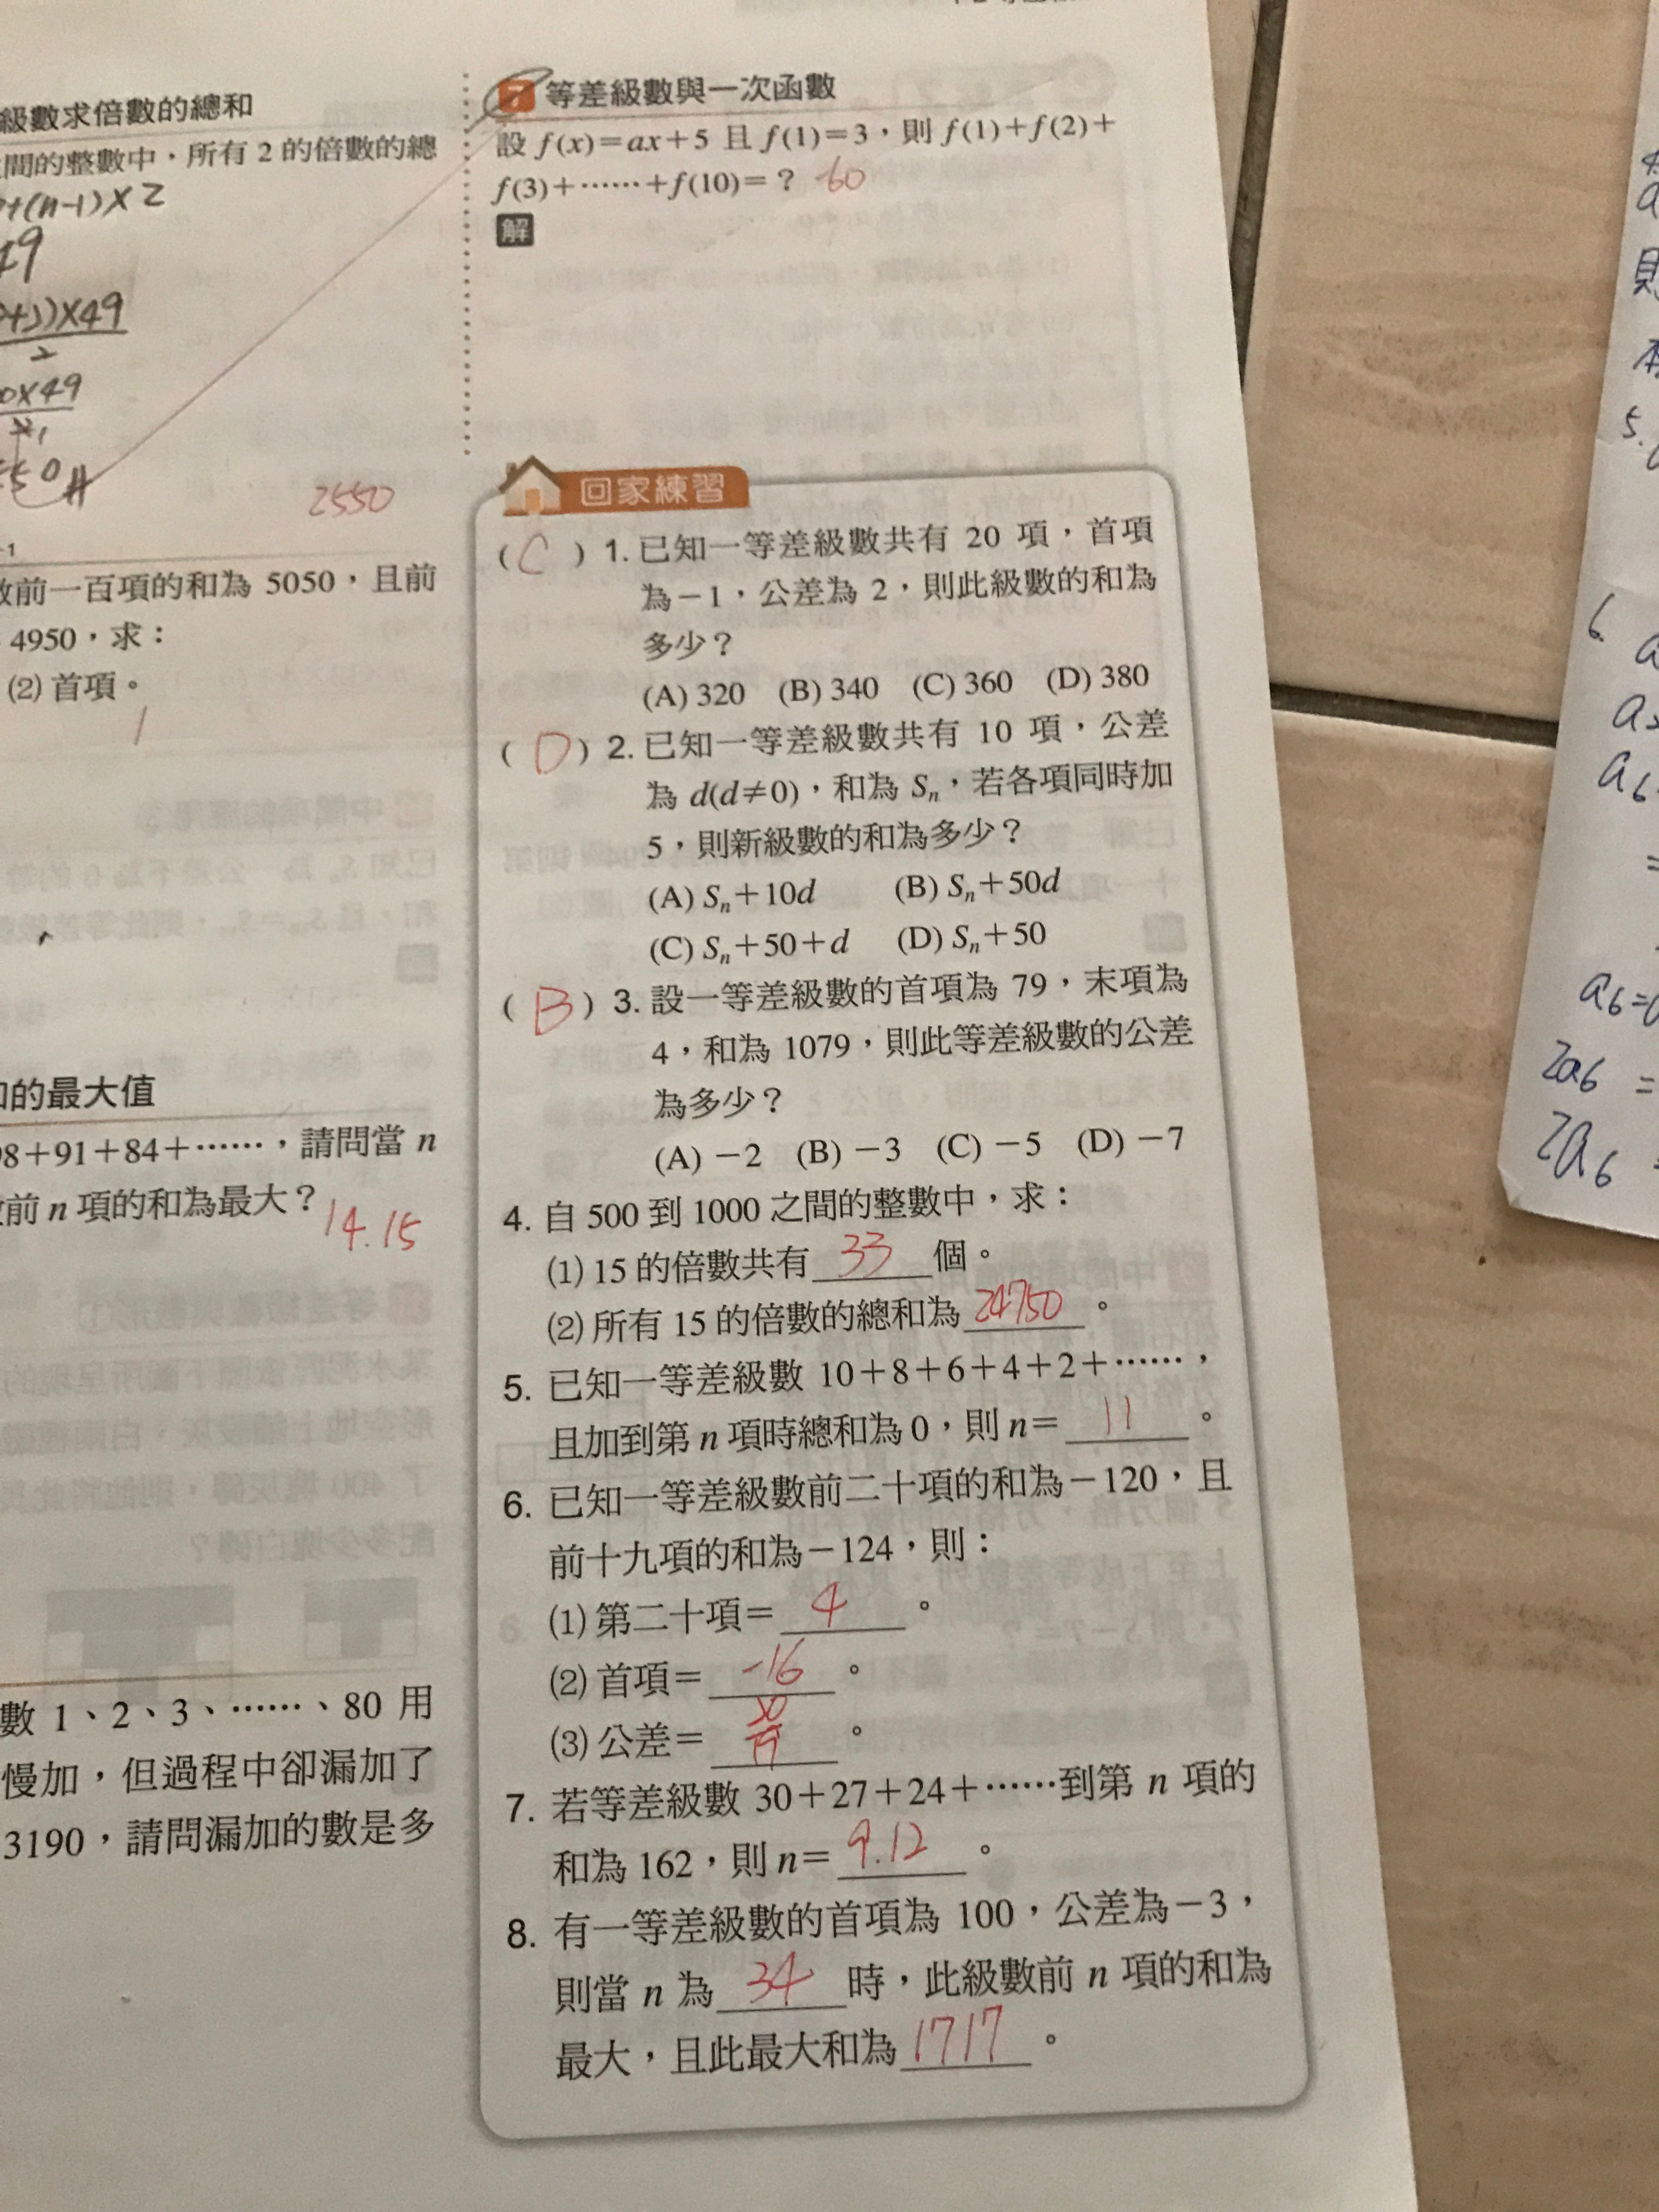 級數求倍數的總和
間的整數中，所有 2 的倍數的總
+(n-1)×2
49
)×49
2
0×49
550 #
2550
數前一百項的和為 5050，且前
4950，求：
(2) 首項。
1
的最大值
98＋91＋84＋……，請問當 n
前 n 項的和為最大？
14.15
數 1、2、3、……、80 用
慢加，但過程中卻漏加了
3190，請問漏加的數是多
7 等差級數與一次函數
設 f(x)＝ax＋5 且 f(1)＝3，則 f(1)＋f(2)＋
f(3)＋……＋f(10)＝？ -60
解
回家練習
( C ) 1. 已知一等差級數共有 20 項，首項
為－1，公差為 2，則此級數的和為
多少？
(A) 320 (B) 340 (C) 360 (D) 380
( D ) 2. 已知一等差級數共有 10 項，公差
為 d(d≠0)，和為 Sn，若各項同時加
5，則新級數的和為多少？
(A) Sn＋10d (B) Sn＋50d
(C) Sn＋50＋d (D) Sn＋50
( B ) 3. 設一等差級數的首項為 79，末項為
4，和為 1079，則此等差級數的公差
為多少？
(A) －2 (B) －3 (C) －5 (D) －7
4. 自 500 到 1000 之間的整數中，求：
(1) 15 的倍數共有 33 個。
(2) 所有 15 的倍數的總和為 24750 。
5. 已知一等差級數 10＋8＋6＋4＋2＋……，
且加到第 n 項時總和為 0，則 n＝ 11 。
6. 已知一等差級數前二十項的和為－120，且
前十九項的和為－124，則：
(1) 第二十項＝ 4 。
(2) 首項＝ -16 。
(3) 公差＝ 20/19 。
7. 若等差級數 30＋27＋24＋……到第 n 項的
和為 162，則 n＝ 9.12 。
8. 有一等差級數的首項為 100，公差為－3，
則當 n 為 34 時，此級數前 n 項的和為
最大，且此最大和為 1717 。
5.
6. a
a6
=
a6=
2a6 =
2a6